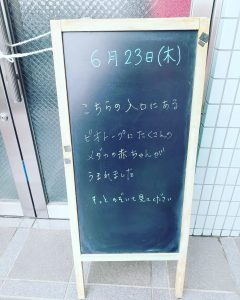 6月23日(木)
こちらの入口にある
ビオトープにたくさんの
メダカの赤ちゃんが
うまれました
そっとのぞいて見てください